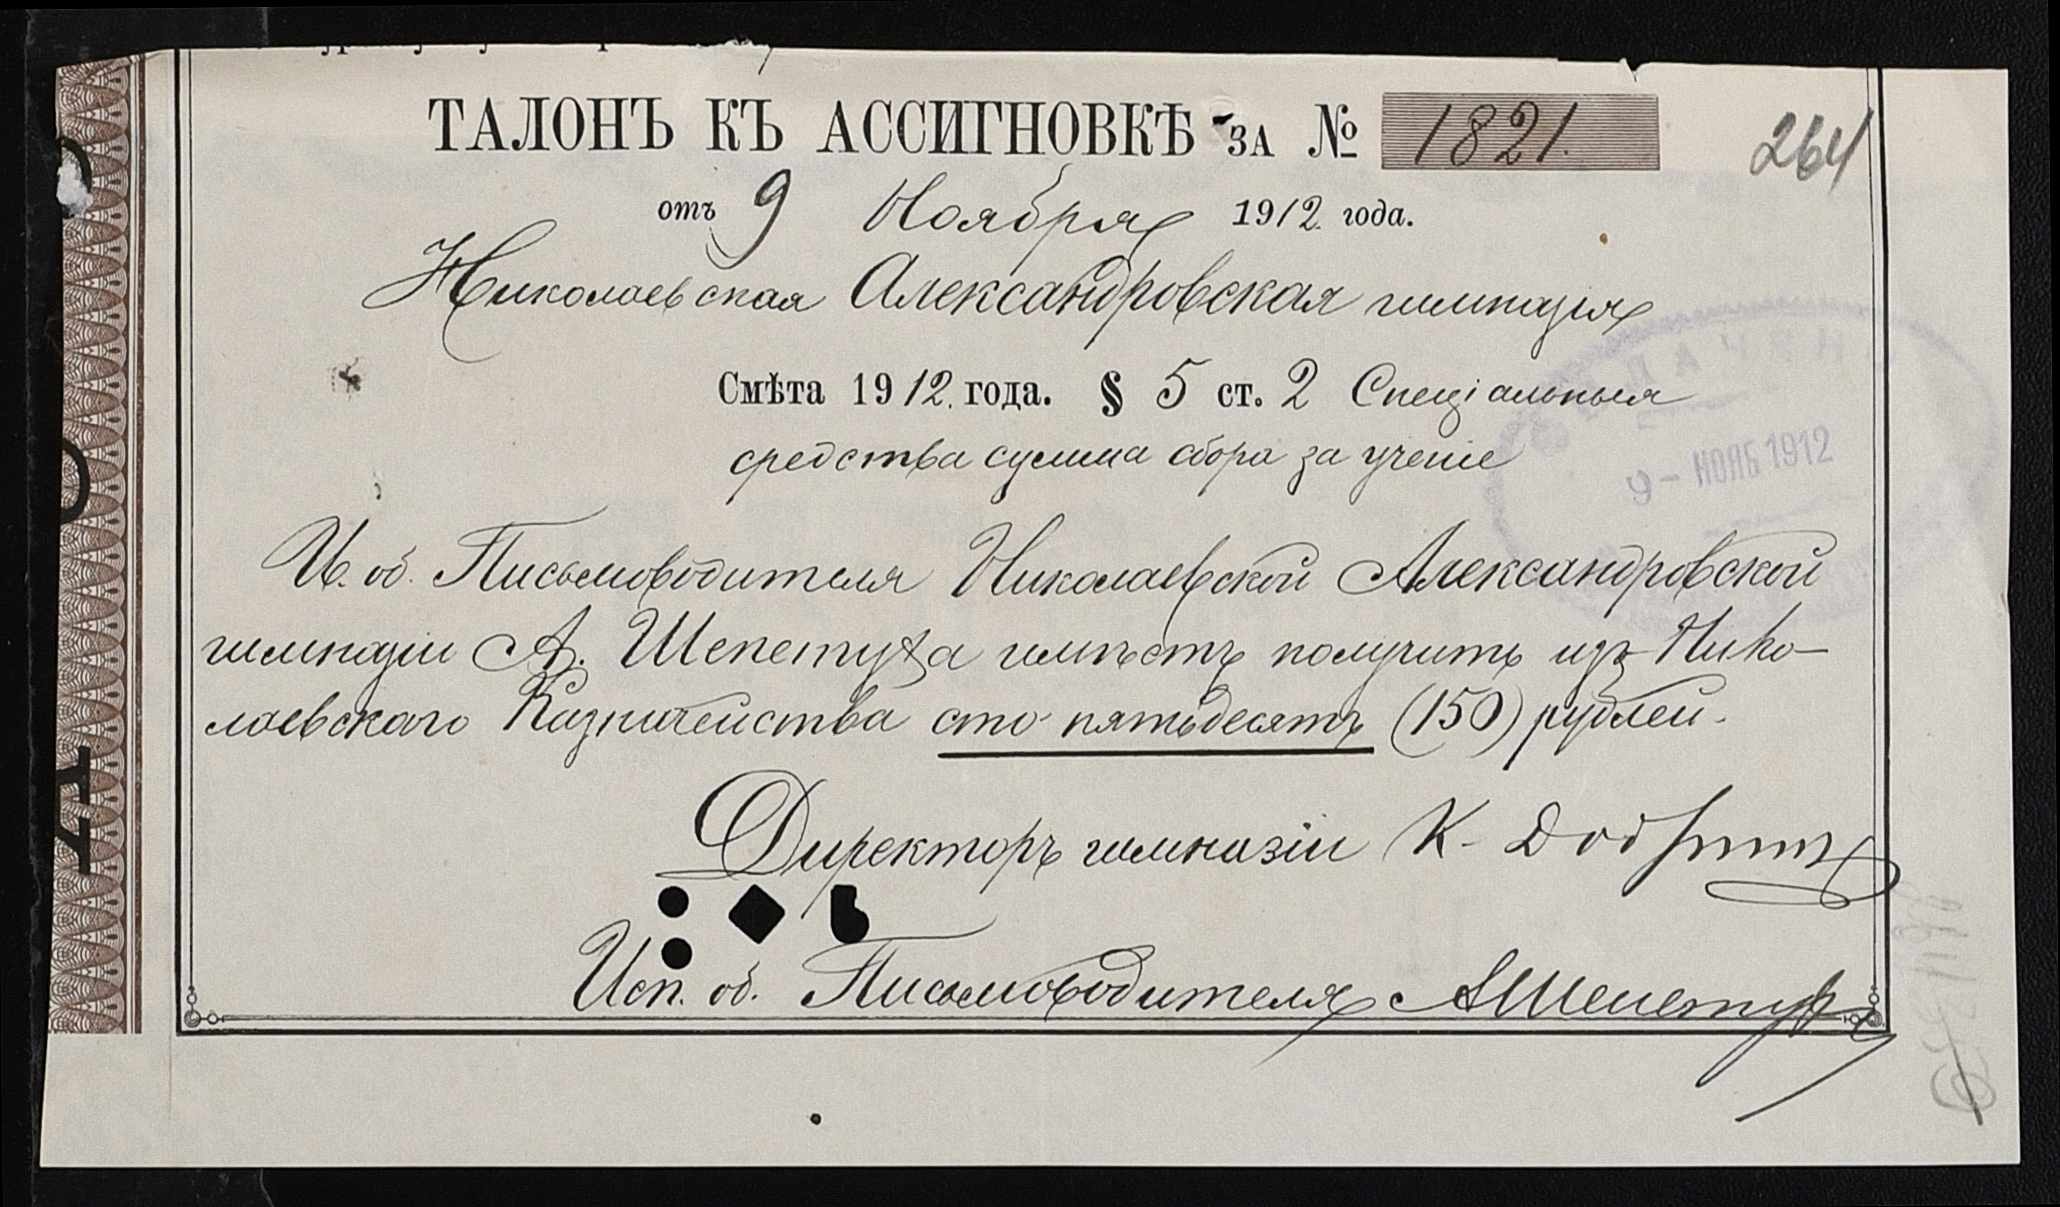 ТАЛОНЪ КЪ АССИГНОВКѢ ЗА № 1821.
264
отъ 9 Ноября 1912 года.
Николаевская Александровская гимназія
Смѣта 1912 года. § 5 ст. 2 Спеціальныя
средства сумма сбора за ученіе
9 - НОЯБ 1912
И. об. Письмоводителя Николаевской Александровской
гимназіи А. Шепетуха имѣетъ получить изъ Нико-
лаевскаго Казначейства сто пятьдесятъ (150) рублей.
Директоръ гимназіи К.
Исп. об. Письмоводителя АШепетух